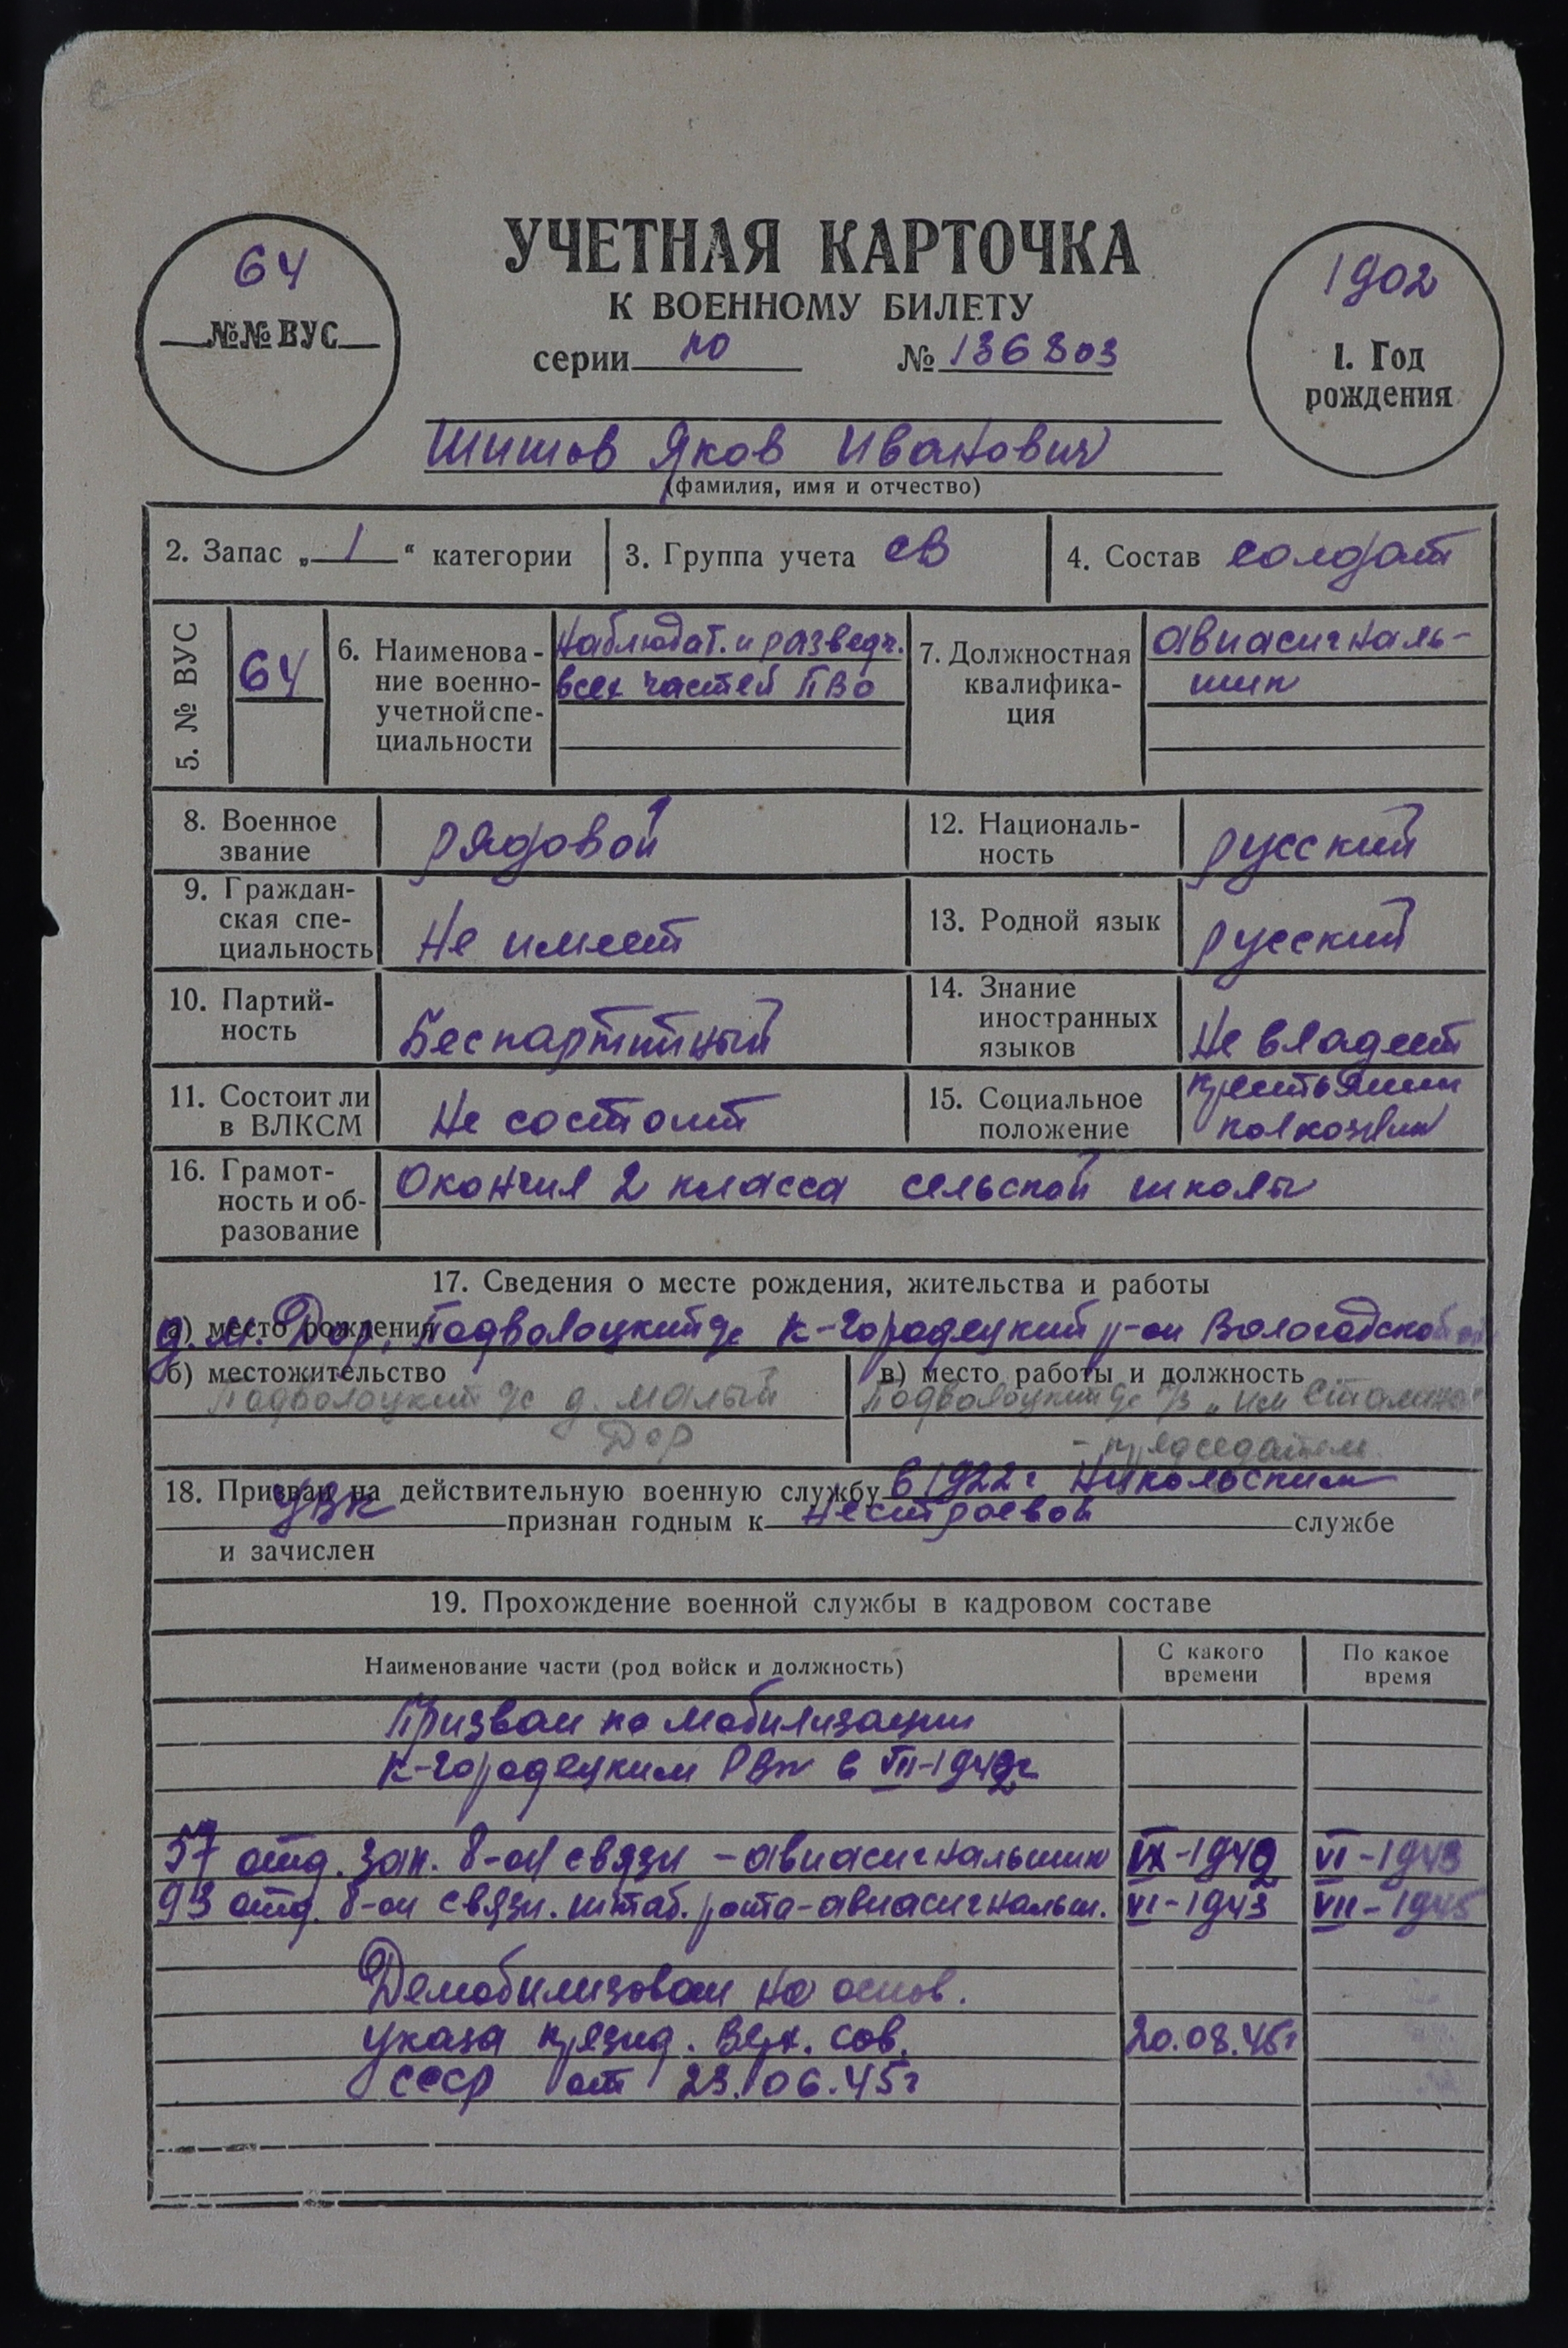 64
№№ ВУС
УЧЕТНАЯ КАРТОЧКА
К ВОЕННОМУ БИЛЕТУ
серии по № 136803
1902
1. Год
рождения
Шишов Яков Иванович
(фамилия, имя и отчество)
2. Запас „ 1 “ категории
3. Группа учета СВ
4. Состав солдат
5. № ВУС
64
6. Наименова-
ние военно-
учетной спе-
циальности
Наблюдат. и разведч.
всех частей ПВО
7. Должностная
квалифика-
ция
авиасигналь-
щик
8. Военное
звание
рядовой
12. Националь-
ность
русский
9. Граждан-
ская спе-
циальность
Не имеет
13. Родной язык
русский
10. Партий-
ность
Беспартийный
14. Знание
иностранных
языков
Не владеет
11. Состоит ли
в ВЛКСМ
Не состоит
15. Социальное
положение
крестьянин
колхозник
16. Грамот-
ность и об-
разование
Окончил 2 класса сельской школы
17. Сведения о месте рождения, жительства и работы
а) место рождения
д. М. Дор, Подволоцкий с/с К-Городецкий р-он Вологодской
б) местожительство
Подволоцкий с/с д. Малый
Дор
в) место работы и должность
Подволоцкий с/с к/з „им Сталина“
- председатель
18. Призван на действительную военную службу в 1922 г Никольским
УВК признан годным к нестроевой службе
и зачислен
19. Прохождение военной службы в кадровом составе
Наименование части (род войск и должность)
С какого
времени
По какое
время
Призван по мобилизации
К-Городецким РВК в VII-1942г
57 отд. зап. б-он связи - авиасигнальщик IX-1942 VI-1943
93 отд. б-он связи. штаб. рота-авиасигнальщ. VI-1943 VII-1945
Демобилизован на основ.
указа презид. Верх. Сов. 20.08.45г
СССР от 23.06.45г